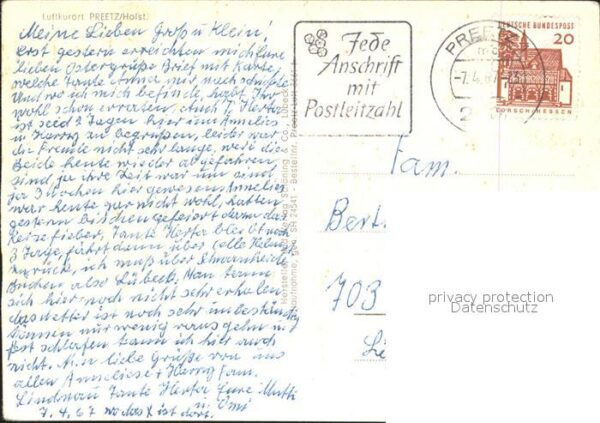 Luftkurort PREETZ/Holst.
Meine Lieben Groß u Klein!
Erst gestern erreichten mich Eure
lieben Ostergrüße Brief mit Karte,
welche Tante Etna mir nachschickte
Und wo ich mich befinde, habt Ihr
wohl schon erraten. Auch T. Herta
ist seid 2 Tagen hier um Annelies
u Harry zu begrüßen, leider war
die Freude nicht sehr lange, weil die
Beide heute wieder abgefahren
sind, ja ihre Zeit war um sind
ja 3 Wochen hier gewesen Annelies
war heute gar nicht wohl, hatten
gestern bischen gefeiert dazu das
Reisefieber, Tante Herta bleibt noch
3 Tage, fährt dann über Celle
zurück, ich muß über
Büchen also Lübeck. Man kann
sich hier noch nicht sehr erholen
das Wetter ist noch sehr unbeständig
können nur wenig rausgehn u
fest schlafen kann ich hier auch
nicht. Nun liebe Grüße von uns
allen Anneliese + Harry Fam.
Lindnau Tante Herta Eure Mutti
u Omi
7.4.67 wo das X ist dort.
Jede
Anschrift
mit
Postleitzahl
PREETZ
-7.4.67
2
DEUTSCHE BUNDESPOST
20
LORSCH/HESSEN
Fam.
Bert
703
privacy protection
Datenschutz